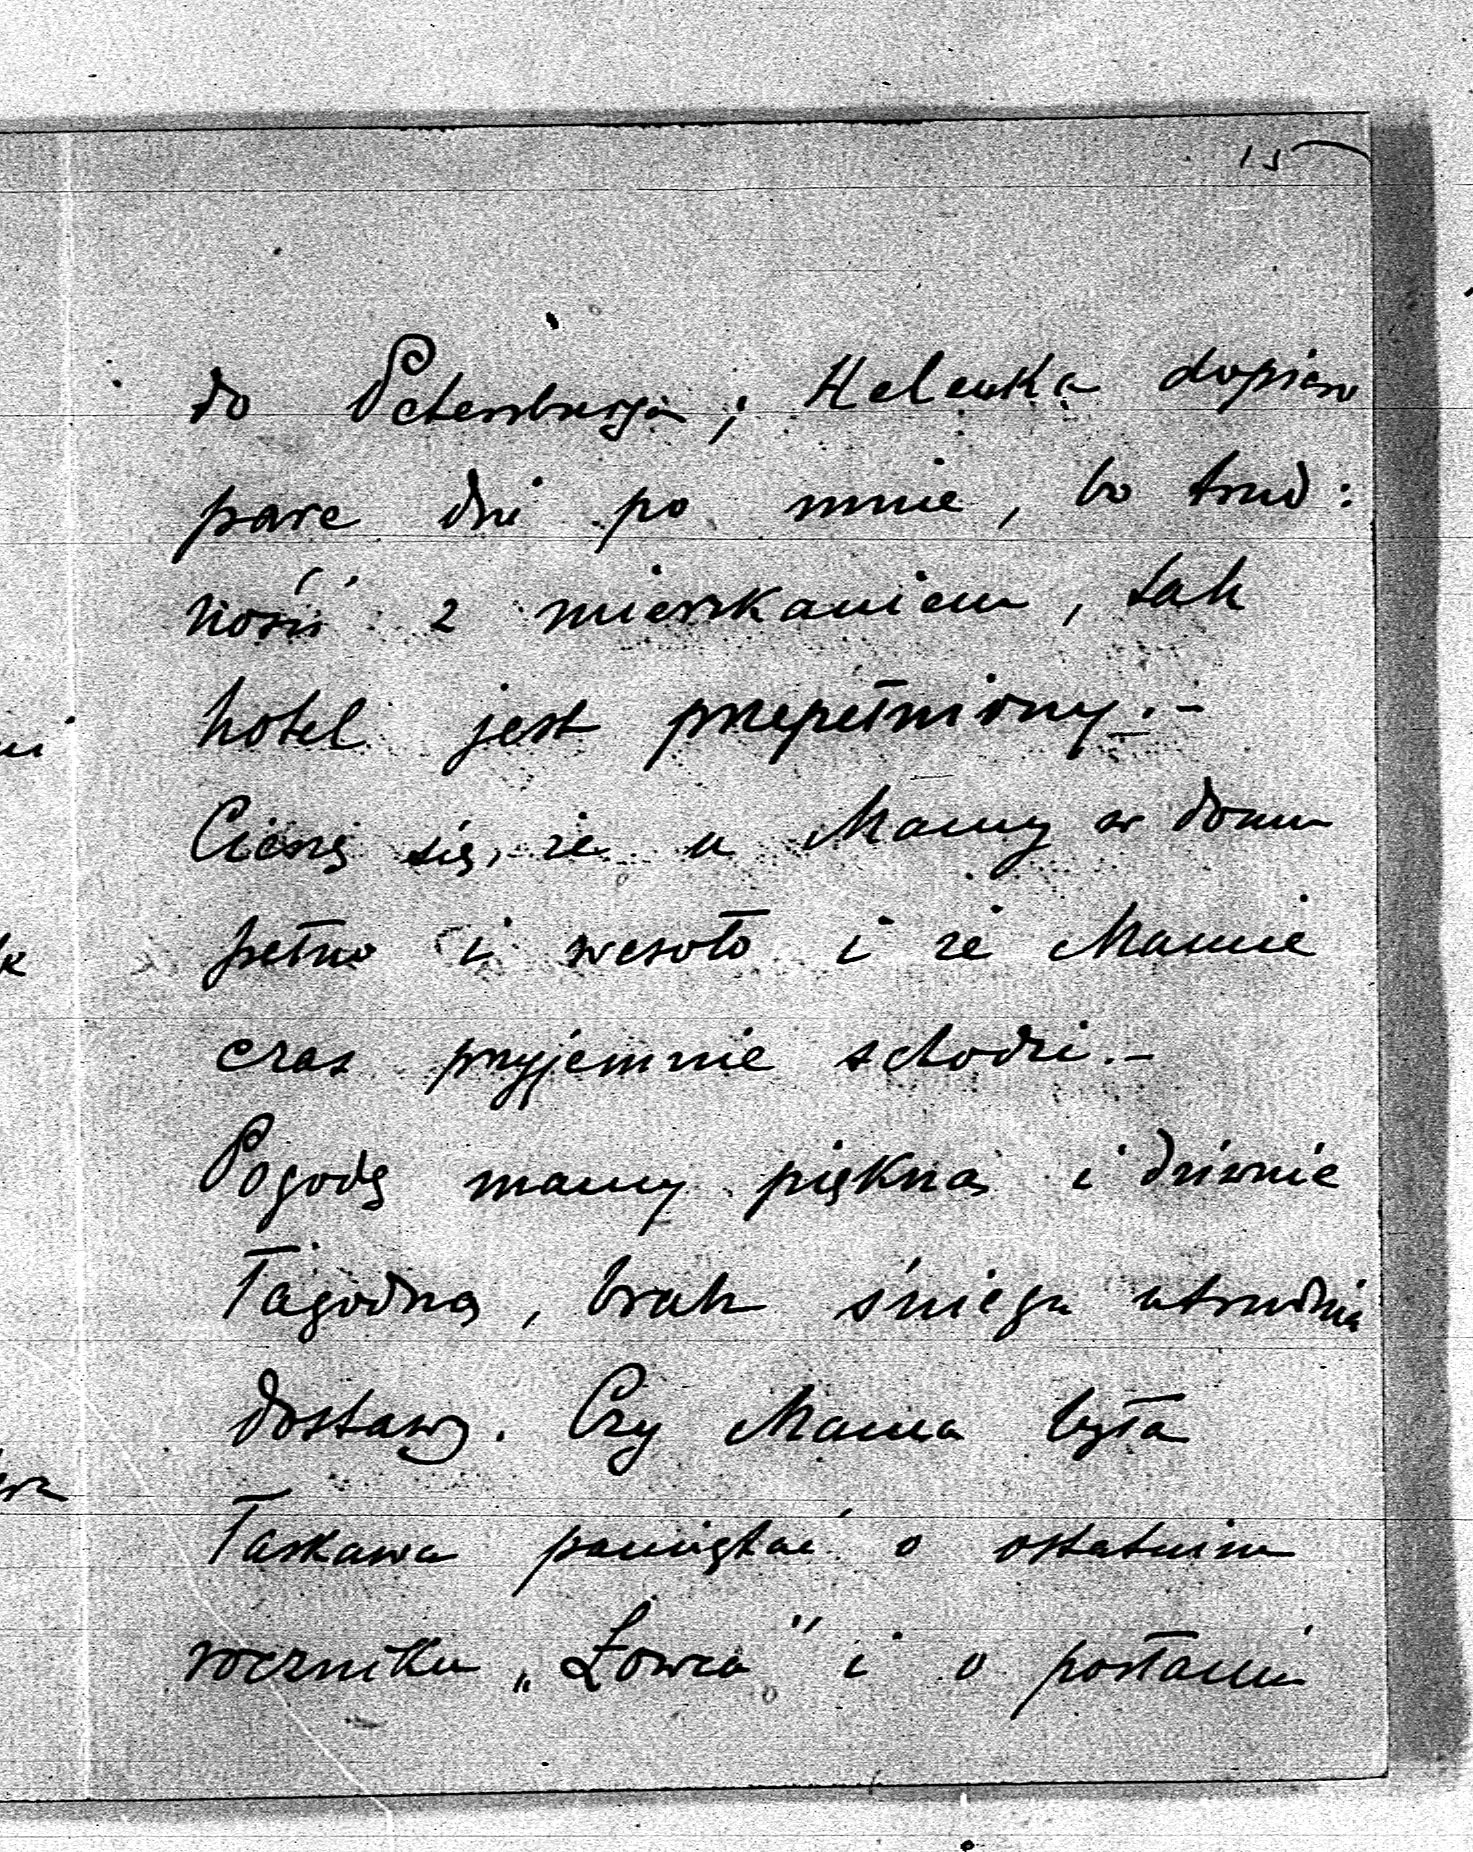 15
do Petersburga; Helenka dopiero
parę dni po mnie, bo trud:
ność z mieszkaniem, tak
hotel jest przepełniony.—
Cieszę się, że u Mamy w domu
pełno i wesoło i że Mamie
czas przyjemnie schodzi.—
Pogodę mamy piękną i dziwnie
łagodną, brak śniegu utrudnia
dostawy. Czy Mama była
łaskawa pamiętać o ostatnim
roczniku „Łowca" i o posłaniu